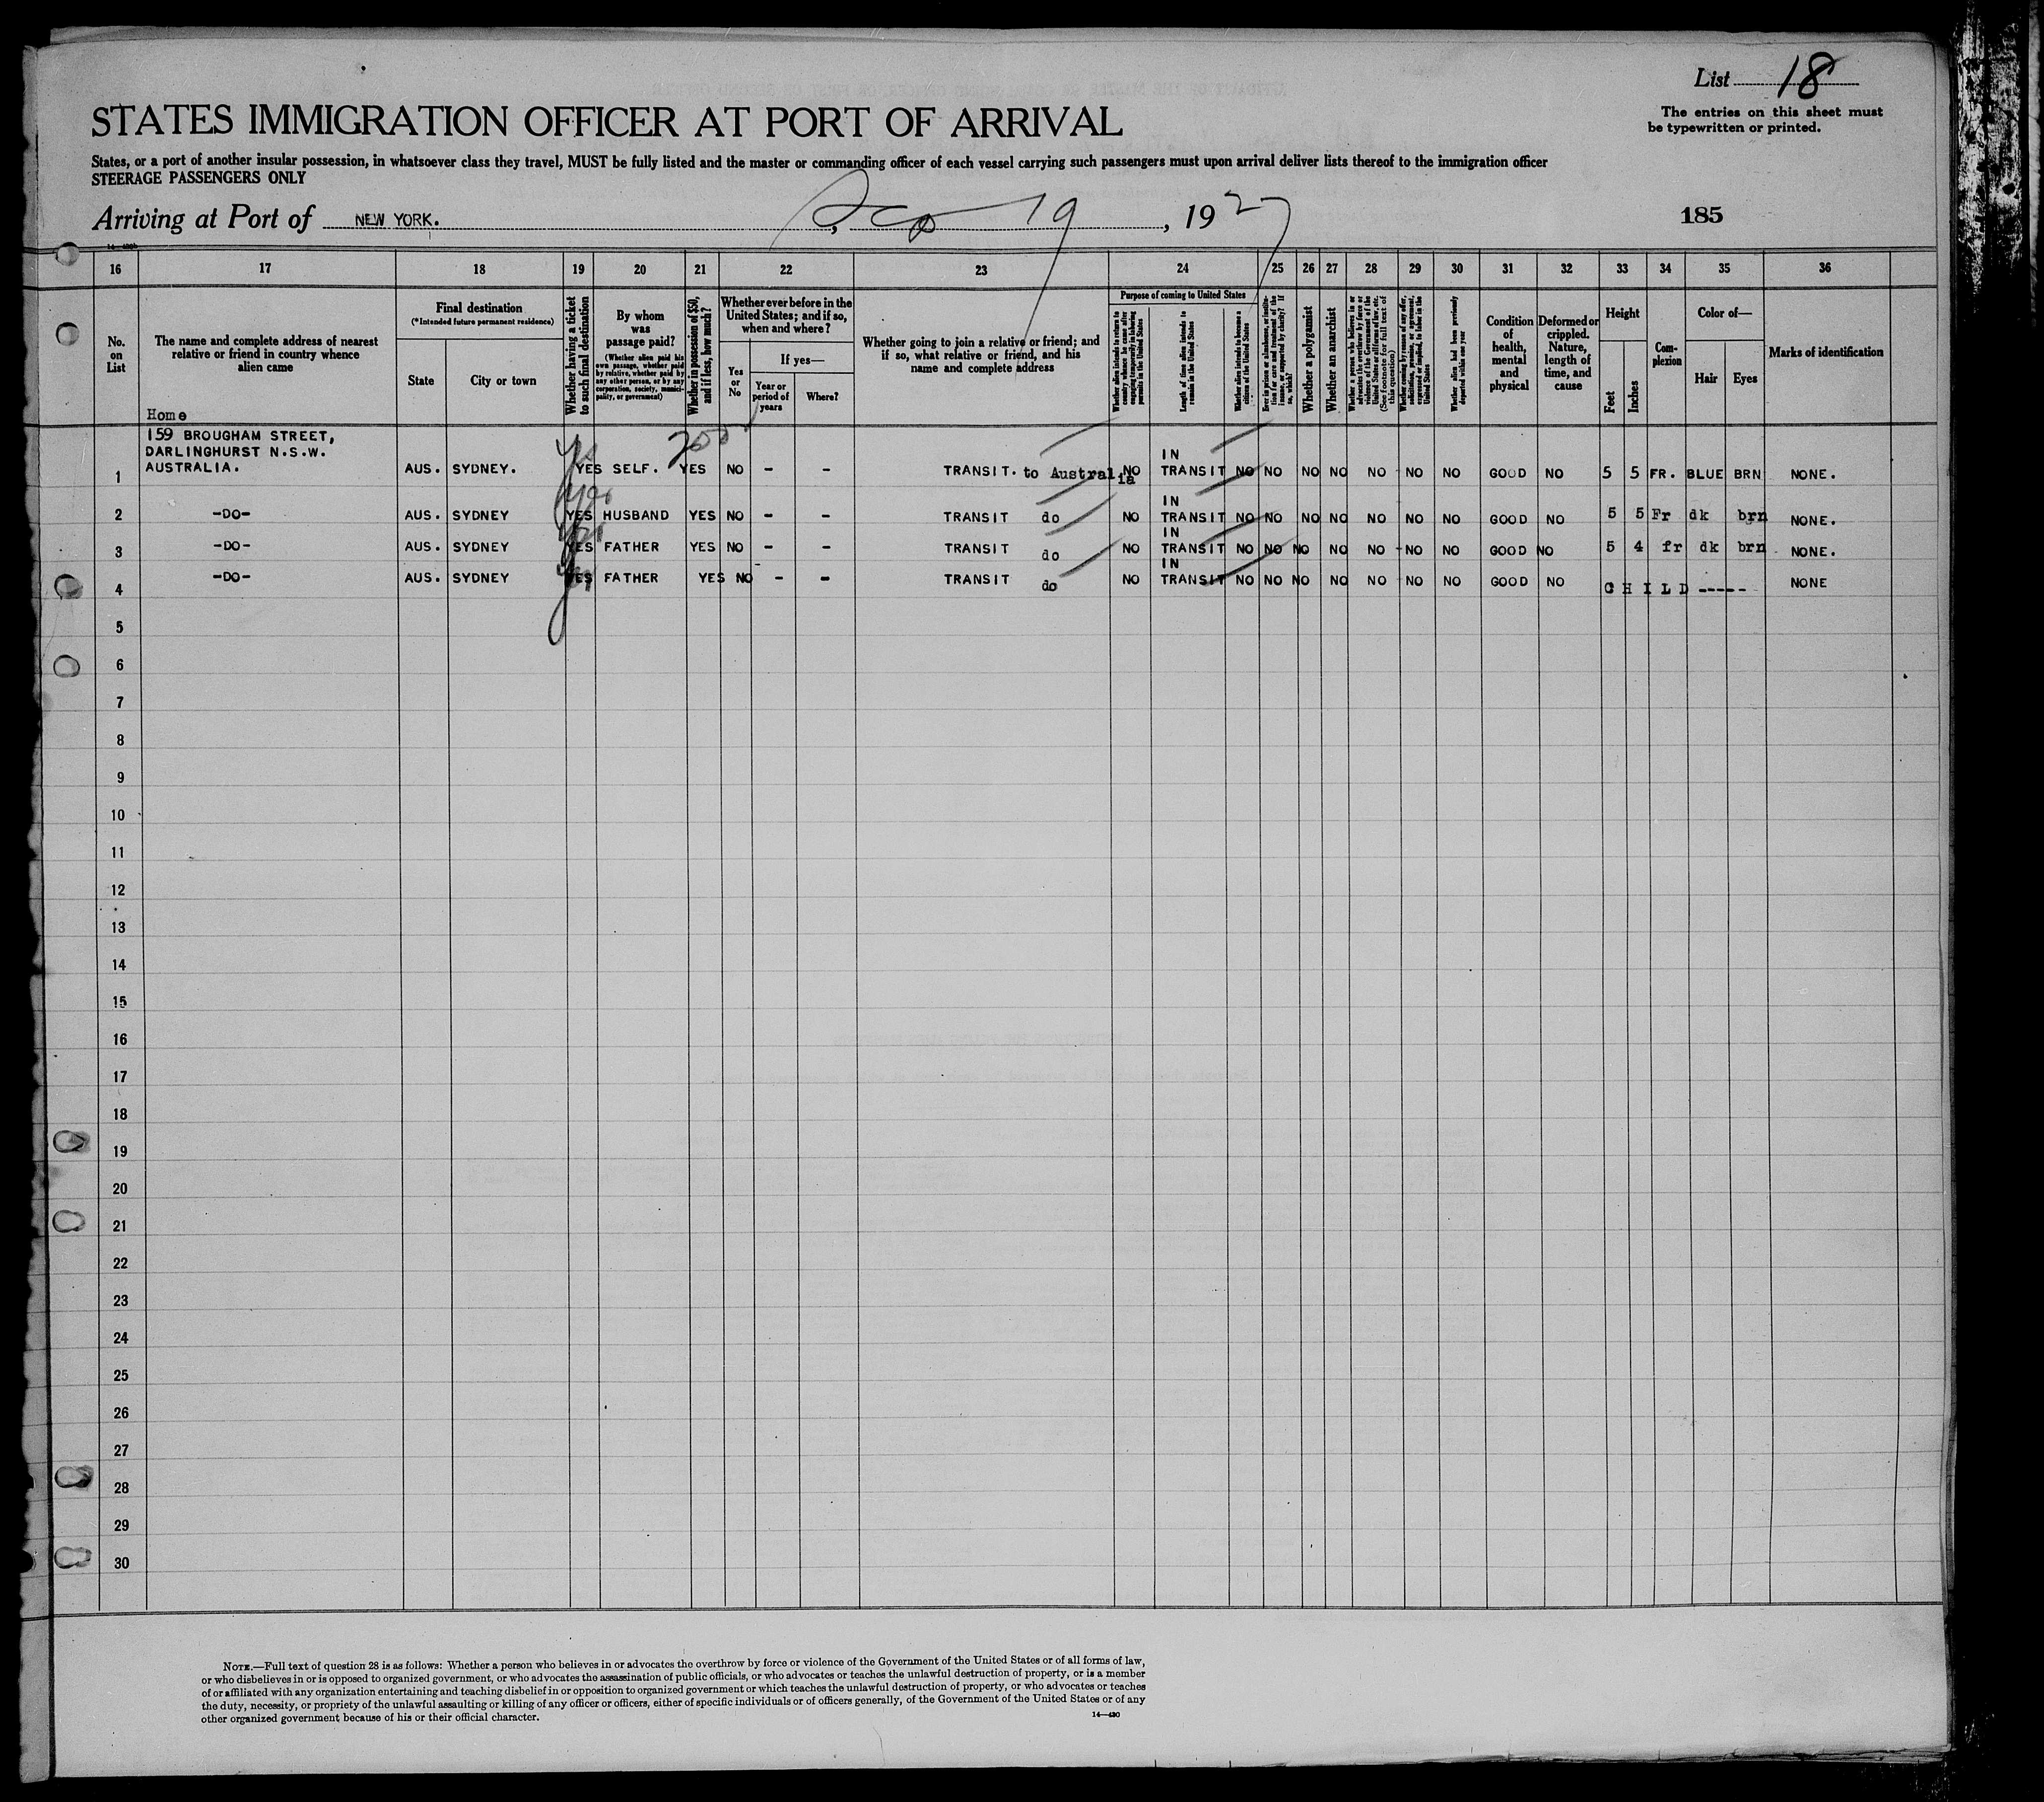 List 18
The entries on this sheet must
be typewritten or printed.
STATES IMMIGRATION OFFICER AT PORT OF ARRIVAL
States, or a port of another insular possession, in whatsoever class they travel, MUST be fully listed and the master or commanding officer of each vessel carrying such passengers must upon arrival deliver lists thereof to the immigration officer
STEERAGE PASSENGERS ONLY
Arriving at Port of NEW YORK. , 19, 1927
185
16 17 18 19 20 21 22 23 24 25 26 27 28 29 30 31 32 33 34 35 36
No. on List
The name and complete address of nearest
relative or friend in country whence
alien came
Home
Final destination
(*Intended future permanent residence)
State
City or town
Whether having a ticket
to such final destination
By whom
was
passage paid?
(Whether alien paid his
own passage, whether paid
by relative, whether paid by
any other person, or by any
corporation, society, munici-
pality, or government)
Whether in possession of $50,
and if less, how much?
Whether ever before in the
United States; and if so,
when and where?
Yes
or
No
If yes—
Year or
period of
years
Where?
Whether going to join a relative or friend; and
if so, what relative or friend, and his
name and complete address
Purpose of coming to United States
Whether alien intends to return to
country whence he came after
engaging temporarily in laboring
pursuits in the United States
Length of time alien intends to
remain in the United States
Whether alien intends to become a
citizen of the United States
Ever in prison or almshouse, or institu-
tion for care and treatment of the
insane, or supported by charity? If
so, which?
Whether a polygamist
Whether an anarchist
Whether a person who believes in or
advocates the overthrow by force or
violence of the Government of the
United States or all forms of law, etc.
(See footnote for full text of
this question)
Whether coming by reason of any offer,
solicitation, promise, or agreement,
expressed or implied, to labor in the
United States
Whether alien had been previously
deported within one year
Condition
of
health,
mental
and
physical
Deformed or
crippled.
Nature,
length of
time, and
cause
Height
Feet
Inches
Com-
plexion
Color of—
Hair
Eyes
Marks of identification
159 BROUGHAM STREET,
DARLINGHURST N.S.W.
AUSTRALIA.
1 AUS. SYDNEY. Yes YES SELF. 200 YES NO - - TRANSIT. to Australia NO IN TRANSIT NO NO NO NO NO NO NO GOOD NO 5 5 FR. BLUE BRN NONE.
2 -DO- AUS. SYDNEY Yes YES HUSBAND YES NO - - TRANSIT do NO IN TRANSIT NO NO NO NO NO NO NO GOOD NO 5 5 Fr dk brn NONE.
3 -DO- AUS. SYDNEY Yes YES FATHER YES NO - - TRANSIT do NO IN TRANSIT NO NO NO NO NO NO NO GOOD NO 5 4 fr dk brn NONE.
4 -DO- AUS. SYDNEY Yes YES FATHER YES NO - - TRANSIT do NO IN TRANSIT NO NO NO NO NO NO NO GOOD NO CHILD ----- NONE
5
6
7
8
9
10
11
12
13
14
15
16
17
18
19
20
21
22
23
24
25
26
27
28
29
30
NOTE.—Full text of question 28 is as follows: Whether a person who believes in or advocates the overthrow by force or violence of the Government of the United States or of all forms of law,
or who disbelieves in or is opposed to organized government, or who advocates the assassination of public officials, or who advocates or teaches the unlawful destruction of property, or is a member
of or affiliated with any organization entertaining and teaching disbelief in or opposition to organized government or which teaches the unlawful destruction of property, or who advocates or teaches
the duty, necessity, or propriety of the unlawful assaulting or killing of any officer or officers, either of specific individuals or of officers generally, of the Government of the United States or of any
other organized government because of his or their official character.
14—430